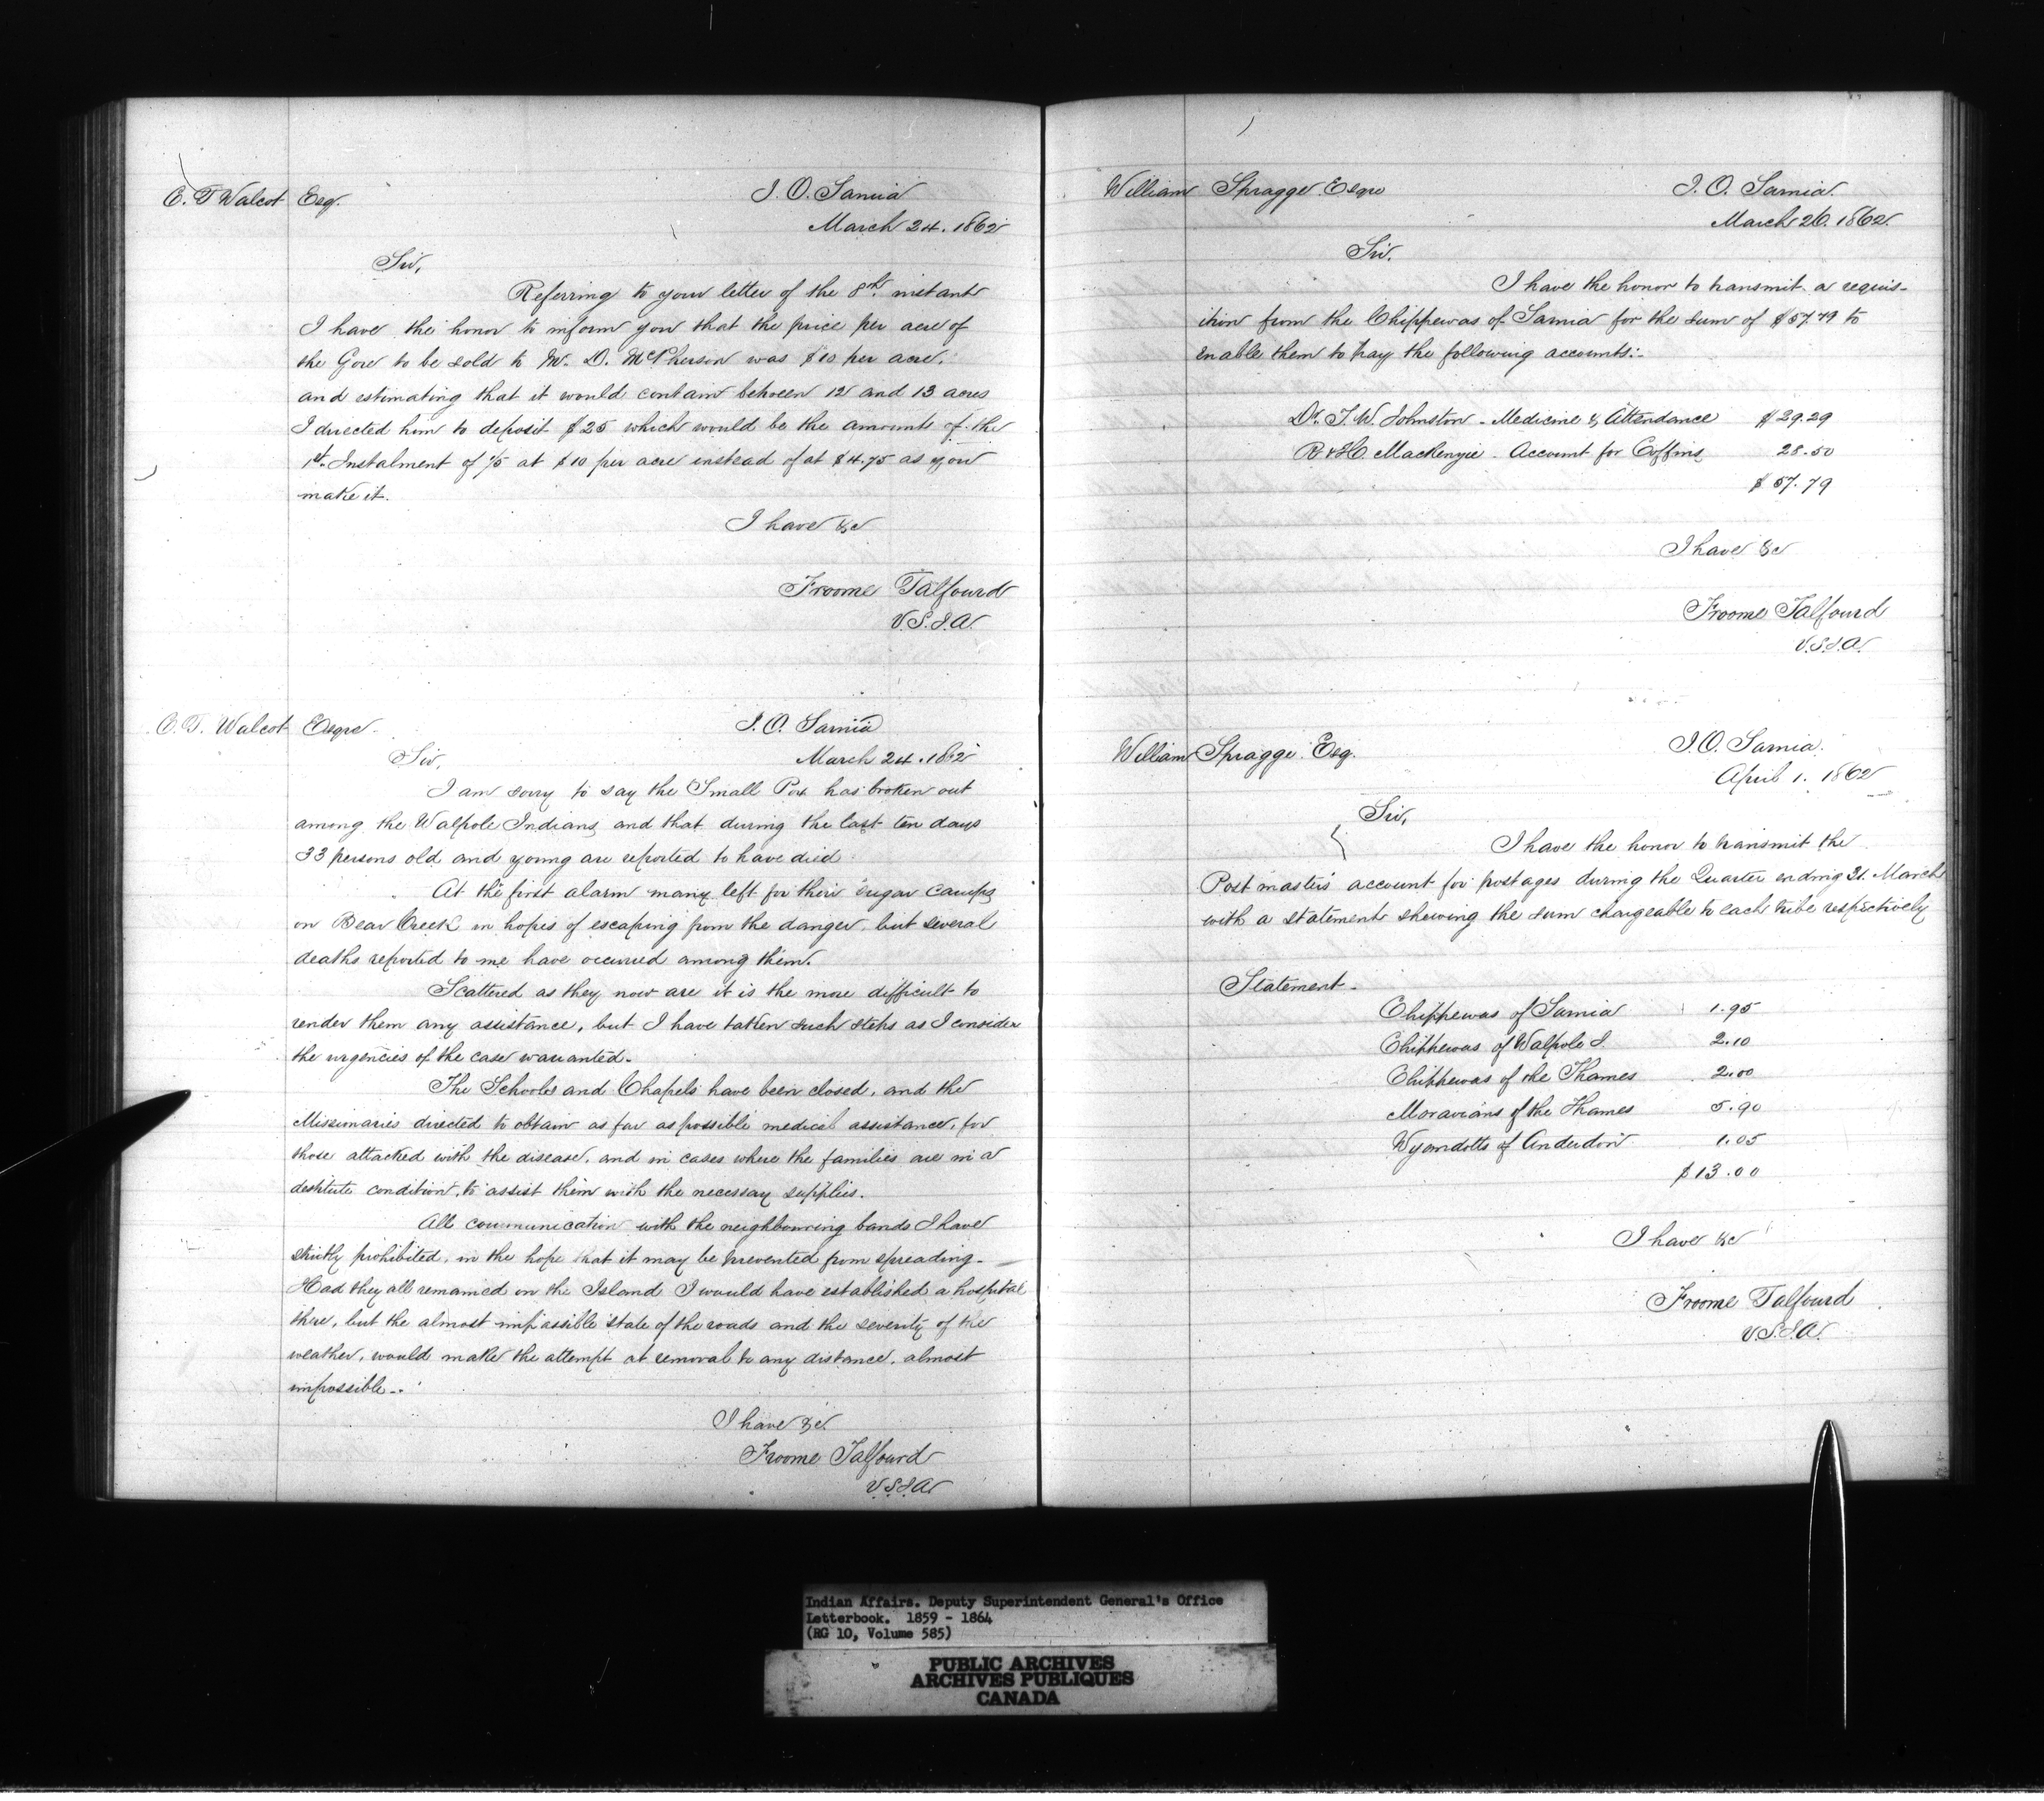 C. T. Walcot Esq.
I. O. Sarnia
March 24. 1862
Sir,
Referring to your letter of the 8th. instant
I have the honor to inform you that the price per acre of
the Gore to be sold to Mr. D. McPherson was $10 per acre.
and estimating that it would contain between 12 and 13 acres
I directed him to deposit $25 which would be the amount of the
1st. Instalment of 1/5 at $10 per acre instead of at $4.75 as you
make it.
I have &c
Froome Talfourd
V.S.I.A.
C. T. Walcot Esqre.
I. O. Sarnia
March 24. 1862
Sir,
I am sorry to say the Small Pox has broken out
among the Walpole Indians and that during the last ten days
33 persons old and young are reported to have died
At the first alarm many left for their sugar camps
on Bear Creek in hopes of escaping from the danger, but several
deaths reported to me have occurred among them.
Scattered as they now are it is the more difficult to
render them any assistance, but I have taken such steps as I consider
the urgencies of the case warranted.
The Schools and Chapels have been closed, and the
Missionaries directed to obtain as far as possible medical assistance, for
those attacked with the disease, and in cases where the families are in a
destitute condition, to assist them with the necessary supplies.
All communication with the neighbouring bands I have
strictly prohibited, in the hope that it may be prevented from spreading.
Had they all remained on the Island I would have established a hospital
there, but the almost impassible state of the roads and the severity of the
weather, would make the attempt at removal to any distance, almost
impossible.
I have &c.
Froome Talfourd
V.S.I.A.
William Spragge Esqre
I. O. Sarnia.
March 26. 1862.
Sir.
I have the honor to transmit a requis-
ition from the Chippewas of Sarnia for the sum of $57.79 to
enable them to pay the following accounts:-
Dr. T. W. Johnston - Medicine & Attendance $29.29
R & H. Mackenzie - Account for Coffins 28.50
$57.79
I have &c
Froome Talfourd
V.S.I.A.
William Spragge Esq.
I. O. Sarnia.
April 1. 1862
Sir,
I have the honor to transmit the
Postmasters' account for postages during the Quarter ending 31. March
with a statement shewing the sum chargeable to each tribe respectively
Statement -
Chippewas of Sarnia 1.95
Chippewas of Walpole I. 2.10
Chippewas of the Thames 2.00
Moravians of the Thames 5.90
Wyomdotts of Anderdon 1.05
$13.00
I have &c
Froome Talfourd
V.S.I.A.
Indian Affairs. Deputy Superintendent General's Office
Letterbook. 1859 - 1864
(RG 10, Volume 585)
PUBLIC ARCHIVES
ARCHIVES PUBLIQUES
CANADA